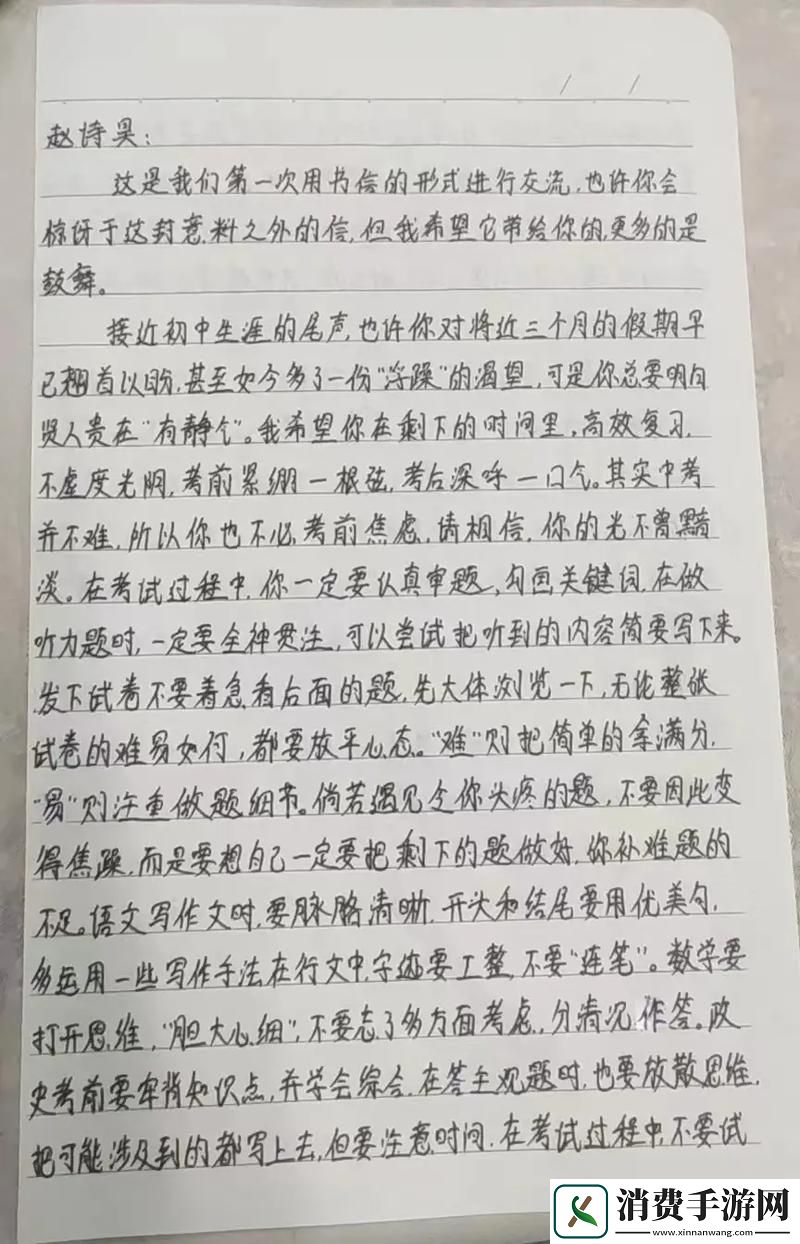 赵诗昊:
这是我们第一次用书信的形式进行交流,也许你会
惊讶于这封意料之外的信,但我希望它带给你的,更多的是
鼓舞。
接近初中生涯的尾声,也许你对将近三个月的假期早
已翘首以盼,甚至如今多了一份“浮躁”的渴望,可是你总要明白
贤人贵在“有静气”。我希望你在剩下的时间里,高效复习,
不虚度光阴,考前紧绷一根弦,考后深呼一口气。其实中考
并不难,所以你也不必考前焦虑,请相信,你的光不曾黯
淡。在考试过程中,你一定要认真审题,勾画关键词,在做
听力题时,一定要全神贯注,可以尝试把听到的内容简要写下来。
发下试卷不要着急看后面的题,先大体浏览一下,无论整张
试卷的难易如何,都要放平心态。“难”则把简单的拿满分,
“易”则注重做题细节。倘若遇见令你头疼的题,不要因此变
得焦躁,而是要想自己一定要把剩下的题做好,弥补难题的
不足。语文写作文时,要脉络清晰,开头和结尾要用优美句,
多运用一些写作手法在行文中,字迹要工整,不要“连笔”。数学要
打开思维,“胆大心细”,不要忘了多方面考虑,分情况作答。政
史考前要牢背知识点,并学会综合,在答主观题时,也要放散思维,
把可能涉及到的都写上去,但要注意时间,在考试过程中,不要试
消费手游网
www.xinnanwang.com